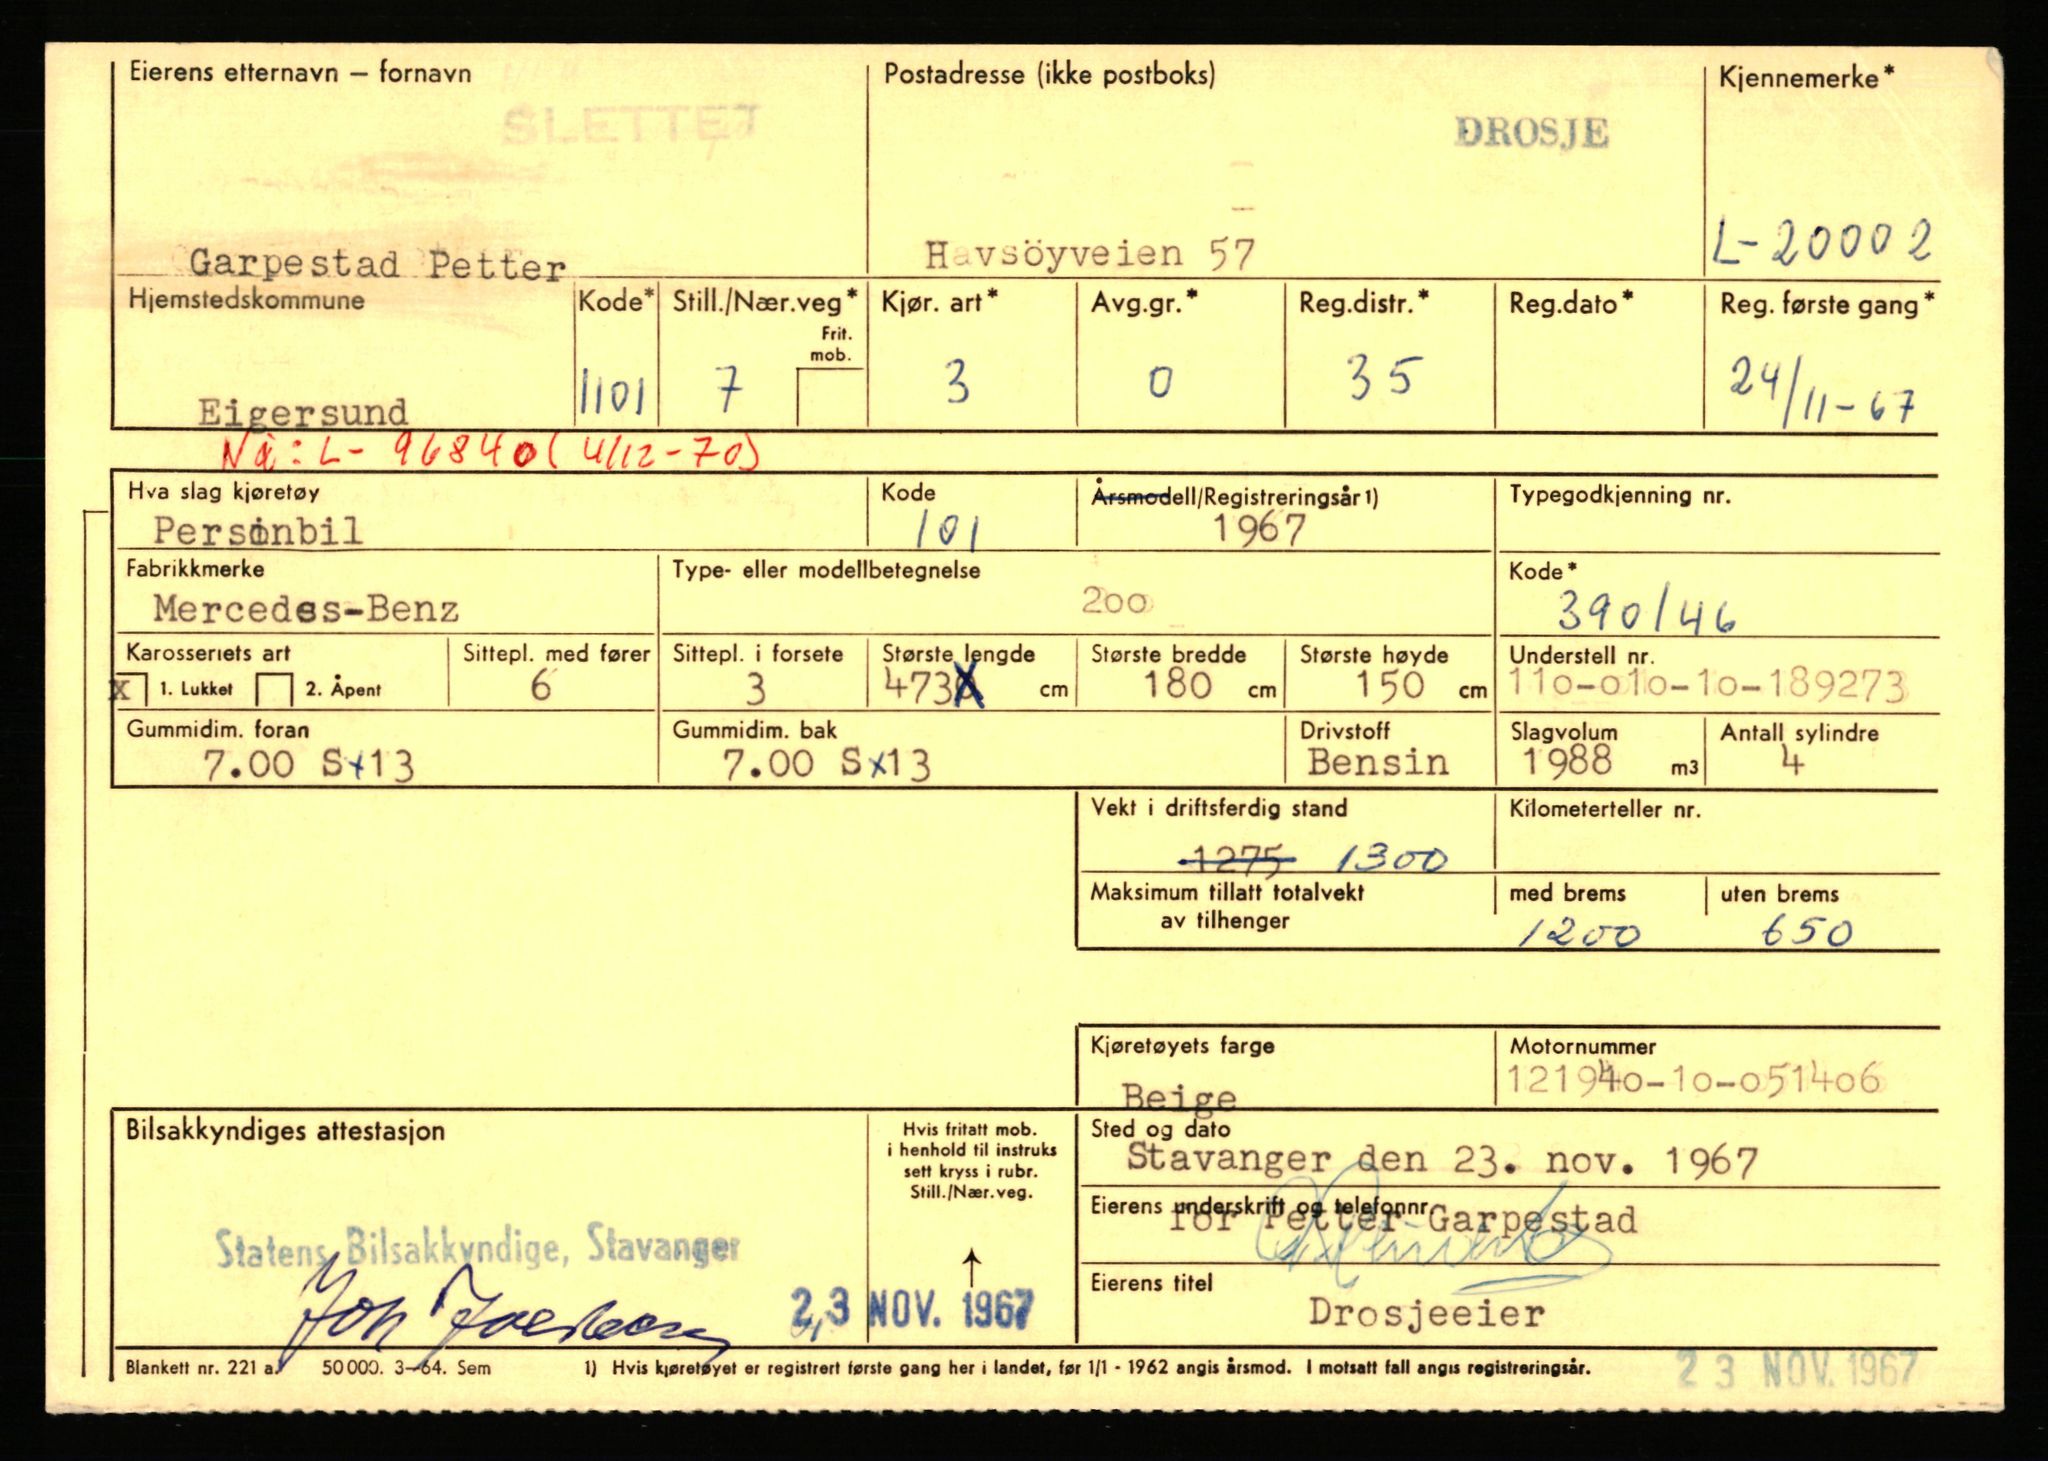 Eierens etternavn – fornavn
Postadresse (ikke postboks)
Kjennemerke*
SLETTET
DROSJE
Garpestad Petter
Havsöyveien 57
L-20002
Hjemstedskommune
Kode*
Still./Nær.veg*
Frit.
mob.
Kjør. art*
Avg.gr.*
Reg.distr.*
Reg.dato*
Reg. første gang*
Eigersund
1101
7
3
0
35
24/11-67
Nå: L- 96840 (4/12-70)
Hva slag kjøretøy
Kode
Årsmodell/Registreringsår 1)
Typegodkjenning nr.
Personbil
101
1967
Fabrikkmerke
Type- eller modellbetegnelse
Kode*
Mercedes-Benz
200
390/46
Karosseriets art
Sittepl. med fører
Sittepl. i forsete
Største lengde
Største bredde
Største høyde
Understell nr.
x 1. Lukket 2. Åpent
6
3
473 cm
180 cm
150 cm
110-010-10-189273
Gummidim. foran
Gummidim. bak
Drivstoff
Slagvolum
Antall sylindre
7.00 Sx13
7.00 Sx13
Bensin
1988 m3
4
Vekt i driftsferdig stand
Kilometerteller nr.
1275 1300
Maksimum tillatt totalvekt
av tilhenger
med brems
uten brems
1200
650
Kjøretøyets farge
Motornummer
Beige
121940-10-051406
Bilsakkyndiges attestasjon
Hvis fritatt mob.
i henhold til instruks
sett kryss i rubr.
Still./Nær.veg.
Sted og dato
Stavanger den 23. nov. 1967
Eierens underskrift og telefonnr
for Petter Garpestad
Statens Bilsakkyndige, Stavanger
23 NOV. 1967
Eierens titel
Drosjeeier
Blankett nr. 221 a. 50 000. 3–64. Sem
1) Hvis kjøretøyet er registrert første gang her i landet, før 1/1 - 1962 angis årsmod. I motsatt fall angis registreringsår.
23 NOV. 1967